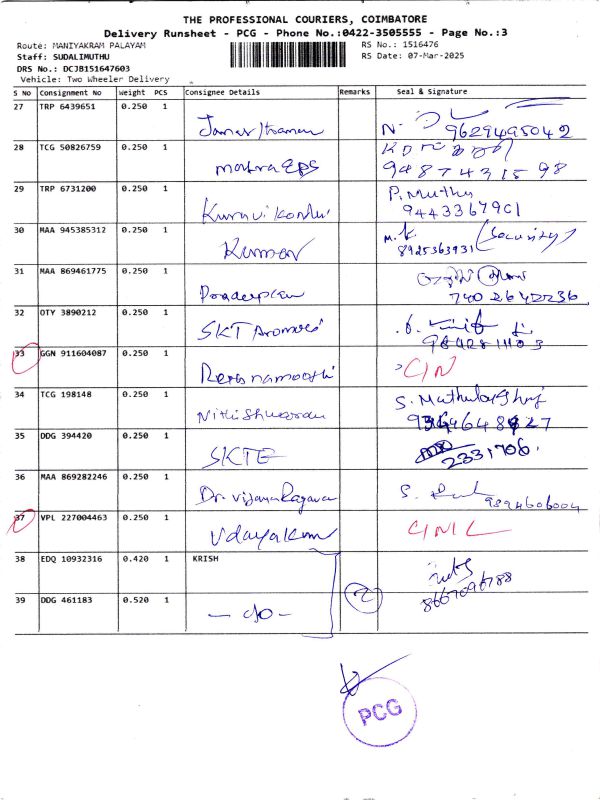 THE PROFESSIONAL COURIERS, COIMBATORE
Delivery Runsheet - PCG - Phone No.:0422-3505555 - Page No.:3
Route: MANIYAKRAM PALAYAM
RS No.: 1516476
Staff: SUDALIMUTHU
RS Date: 07-Mar-2025
DRS No.: DCJB151647603
Vehicle: Two Wheeler Delivery
S No Consignment No Weight PCS Consignee Details Remarks Seal & Signature
27 TRP 6439651 0.250 1 N. 9629495042
28 TCG 50826759 0.250 1 9487431598
29 TRP 6731200 0.250 1 P. Muthu
9443367901
30 MAA 945385312 0.250 1 Kumar M. K (Security)
8925363931
31 MAA 869461775 0.250 1 7402642236
32 OTY 3890212 0.250 1 SKT
33 GGN 911604087 0.250 1 C/N
34 TCG 198148 0.250 1 S.
35 DDG 394420 0.250 1 SKTE 2331706.
36 MAA 869282246 0.250 1 Dr. Vijaya Ragava S. 9894606004
37 VPL 227004463 0.250 1 Udayakum
38 EDQ 10932316 0.420 1 KRISH 8667096788
39 DDG 461183 0.520 1 — do — 2
PCG